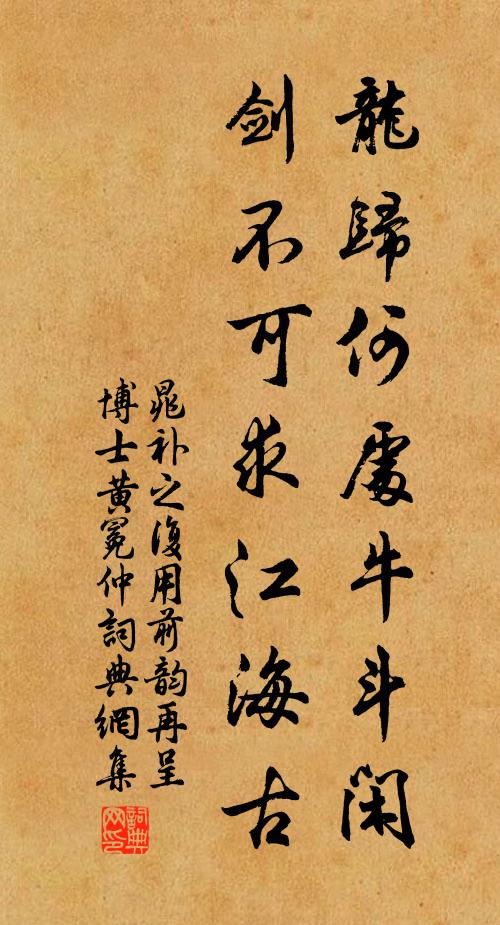 龍歸何處牛斗閑
劍不可求江海古
晁补之復用前韵再呈
博士黄冕仲詞典網集
詞典
网印